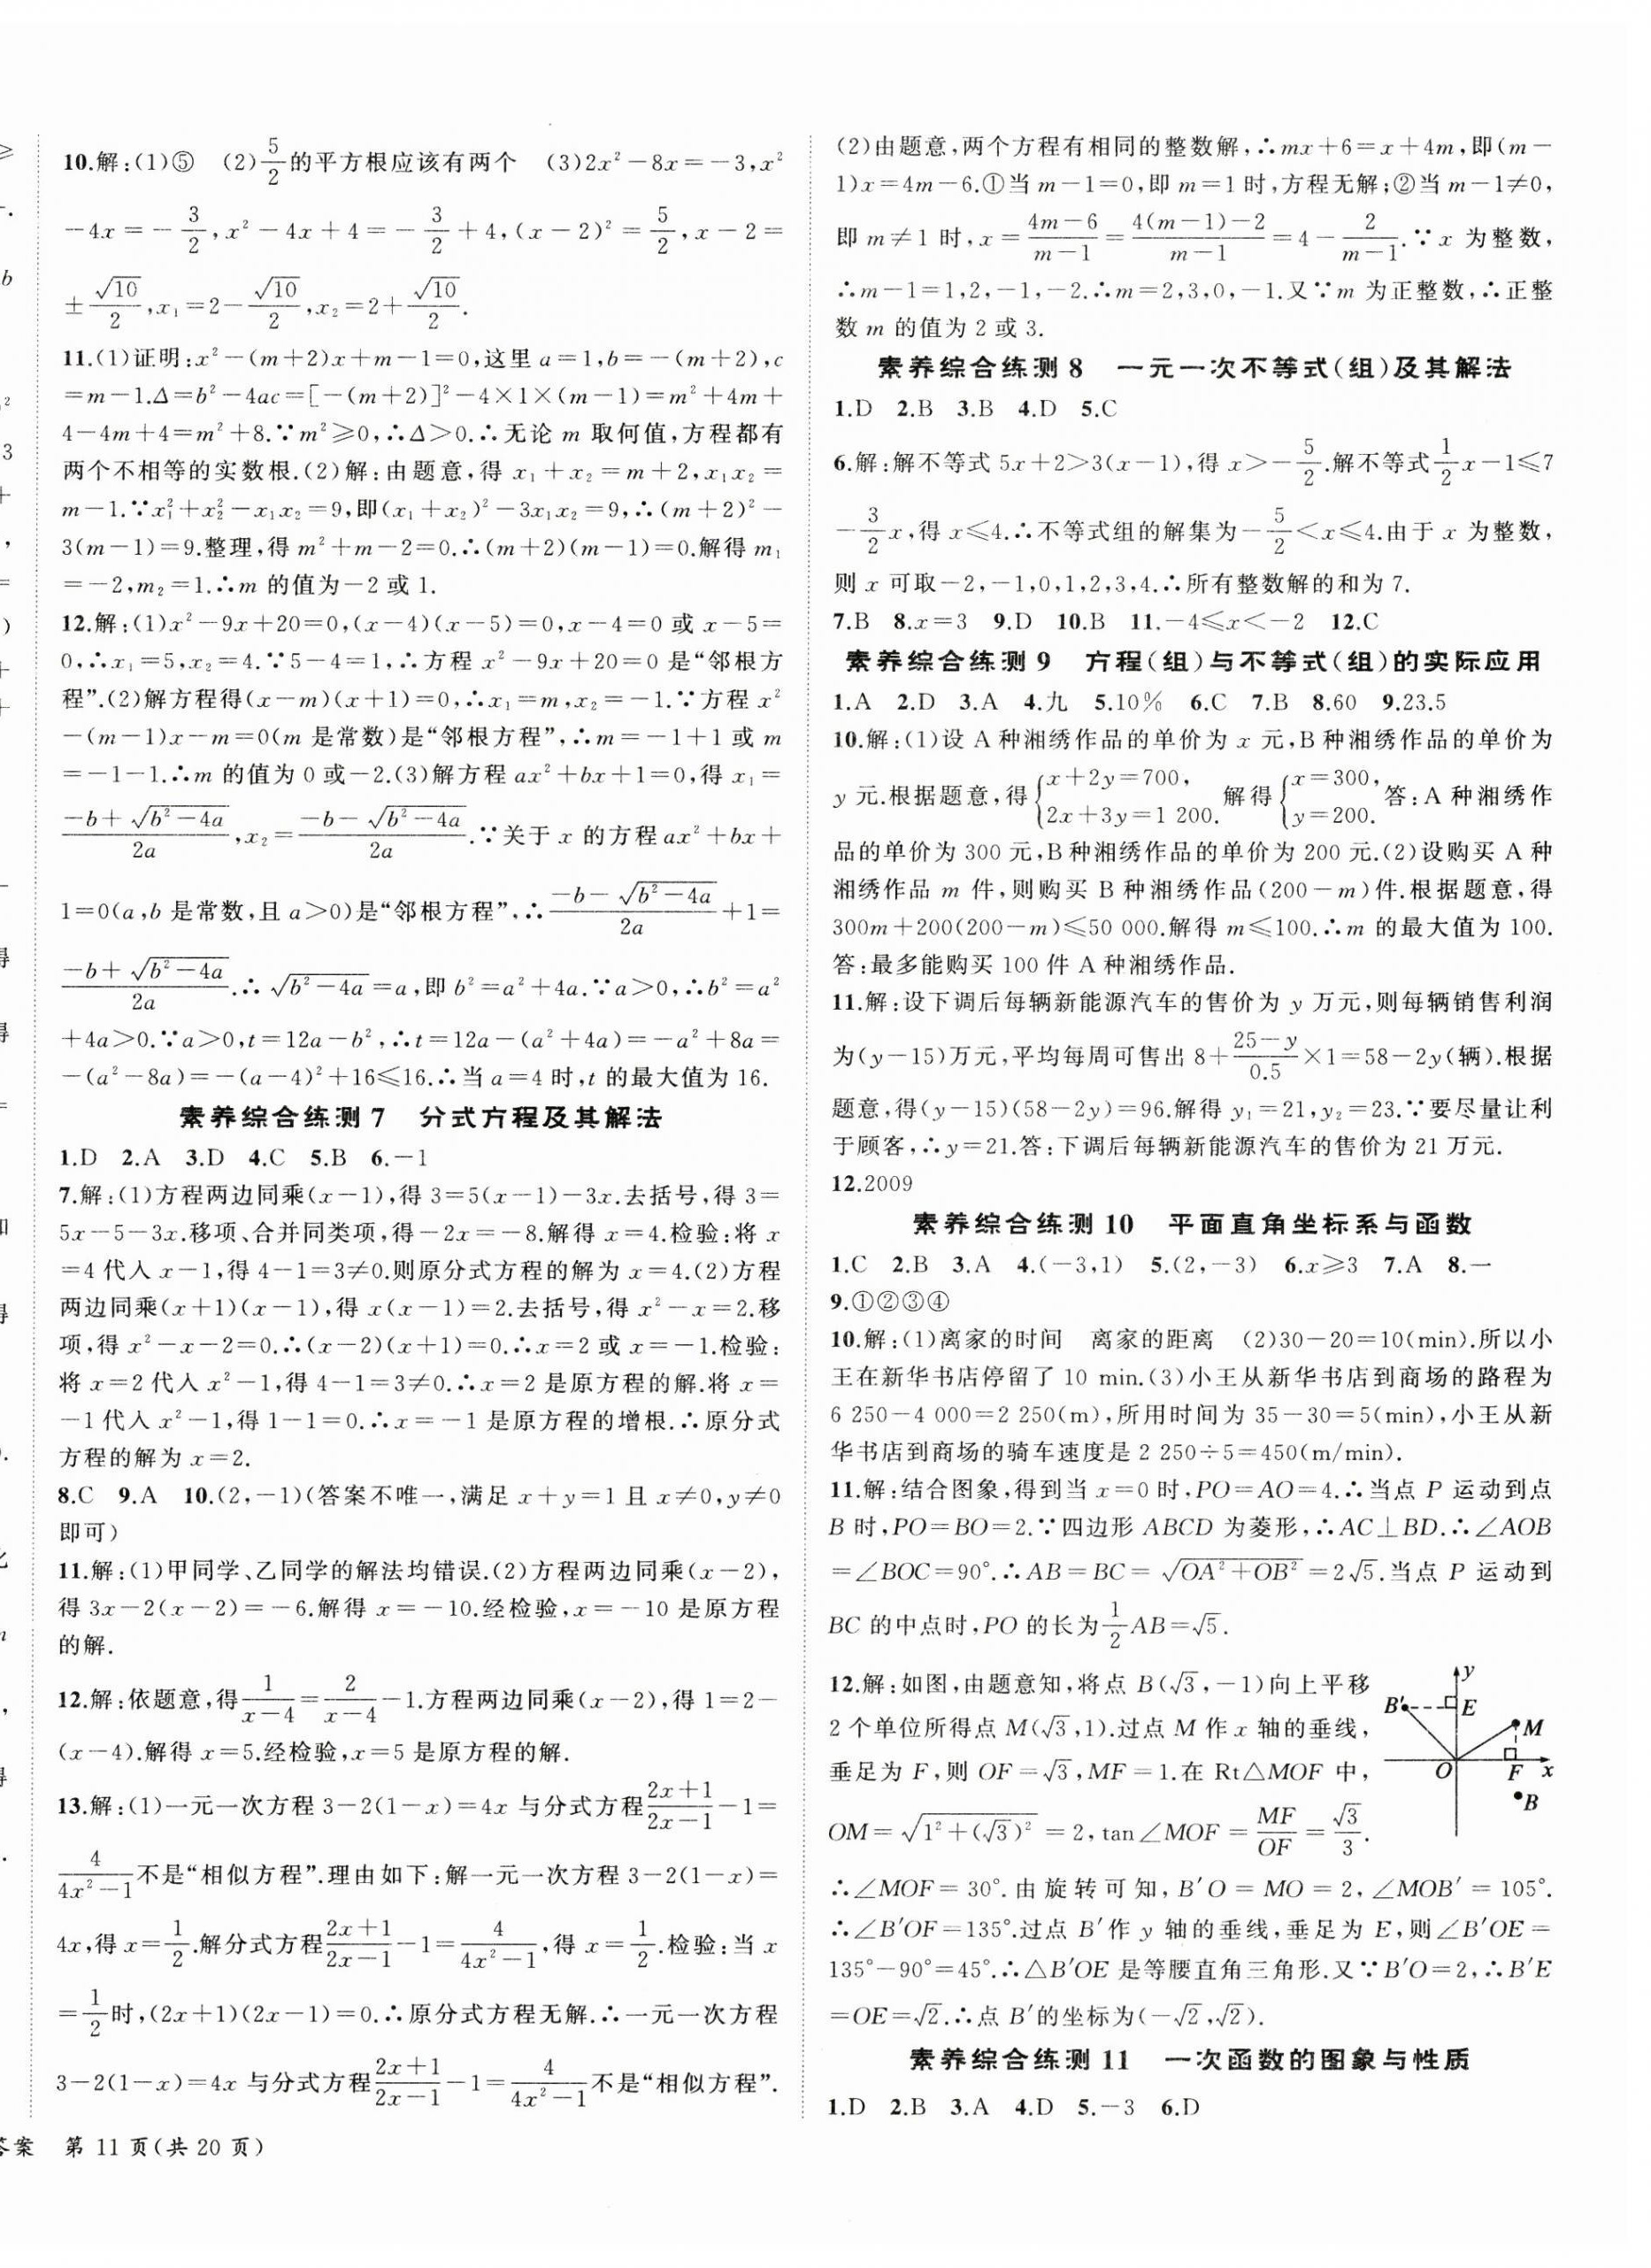 10.解:(1)⑤ (2)5/2的平方根应该有两个 (3)2x²-8x=-3,x²
-4x=-3/2,x²-4x+4=-3/2+4,(x-2)²=5/2,x-2=
±√10/2,x₁=2-√10/2,x₂=2+√10/2.
11.(1)证明:x²-(m+2)x+m-1=0,这里a=1,b=-(m+2),c
=m-1.Δ=b²-4ac=[-(m+2)]²-4×1×(m-1)=m²+4m+
4-4m+4=m²+8.∵m²≥0,∴Δ>0.∴无论m取何值,方程都有
两个不相等的实数根.(2)解:由题意,得x₁+x₂=m+2,x₁x₂=
m-1.∵x₁²+x₂²-x₁x₂=9,即(x₁+x₂)²-3x₁x₂=9,∴(m+2)²-
3(m-1)=9.整理,得m²+m-2=0.∴(m+2)(m-1)=0.解得m₁
=-2,m₂=1.∴m的值为-2或1.
12.解:(1)x²-9x+20=0,(x-4)(x-5)=0,x-4=0或x-5=
0,∴x₁=5,x₂=4.∵5-4=1,∴方程x²-9x+20=0是“邻根方
程”.(2)解方程得(x-m)(x+1)=0,∴x₁=m,x₂=-1.∵方程x²
-(m-1)x-m=0(m是常数)是“邻根方程”,∴m=-1+1或m
=-1-1.∴m的值为0或-2.(3)解方程ax²+bx+1=0,得x₁=
(-b+√(b²-4a))/2a,x₂=(-b-√(b²-4a))/2a.∵关于x的方程ax²+bx+
1=0(a,b是常数,且a>0)是“邻根方程”,∴(-b-√(b²-4a))/2a+1=
(-b+√(b²-4a))/2a.∴√(b²-4a)=a,即b²=a²+4a.∵a>0,∴b²=a²
+4a>0.∵a>0,t=12a-b²,∴t=12a-(a²+4a)=-a²+8a=
-(a²-8a)=-(a-4)²+16≤16.∴当a=4时,t的最大值为16.
素养综合练测7 分式方程及其解法
1.D 2.A 3.D 4.C 5.B 6.-1
7.解:(1)方程两边同乘(x-1),得3=5(x-1)-3x.去括号,得3=
5x-5-3x.移项、合并同类项,得-2x=-8.解得x=4.检验:将x
=4代入x-1,得4-1=3≠0.则原分式方程的解为x=4.(2)方程
两边同乘(x+1)(x-1),得x(x-1)=2.去括号,得x²-x=2.移
项,得x²-x-2=0.∴(x-2)(x+1)=0.∴x=2或x=-1.检验:
将x=2代入x²-1,得4-1=3≠0.∴x=2是原方程的解.将x=
-1代入x²-1,得1-1=0.∴x=-1是原方程的增根.∴原分式
方程的解为x=2.
8.C 9.A 10.(2,-1)(答案不唯一,满足x+y=1且x≠0,y≠0
即可)
11.解:(1)甲同学、乙同学的解法均错误.(2)方程两边同乘(x-2),
得3x-2(x-2)=-6.解得x=-10.经检验,x=-10是原方程
的解.
12.解:依题意,得1/(x-4)=2/(x-4)-1.方程两边同乘(x-2),得1=2-
(x-4).解得x=5.经检验,x=5是原方程的解.
13.解:(1)一元一次方程3-2(1-x)=4x与分式方程(2x+1)/(2x-1)-1=
4/(4x²-1)不是“相似方程”.理由如下:解一元一次方程3-2(1-x)=
4x,得x=1/2.解分式方程(2x+1)/(2x-1)-1=4/(4x²-1),得x=1/2.检验:当x
=1/2时,(2x+1)(2x-1)=0.∴原分式方程无解.∴一元一次方程
3-2(1-x)=4x与分式方程(2x+1)/(2x-1)-1=4/(4x²-1)不是“相似方程”.
答案 第11页(共20页)
(2)由题意,两个方程有相同的整数解,∴mx+6=x+4m,即(m-
1)x=4m-6.①当m-1=0,即m=1时,方程无解;②当m-1≠0,
即m≠1时,x=(4m-6)/(m-1)=(4(m-1)-2)/(m-1)=4-2/(m-1).∵x为整数,
∴m-1=1,2,-1,-2.∴m=2,3,0,-1.又∵m为正整数,∴正整
数m的值为2或3.
素养综合练测8 一元一次不等式(组)及其解法
1.D 2.B 3.B 4.D 5.C
6.解:解不等式5x+2>3(x-1),得x>-5/2.解不等式1/2x-1≤7
-3/2x,得x≤4.∴不等式组的解集为-5/2<x≤4.由于x为整数,
则x可取-2,-1,0,1,2,3,4.∴所有整数解的和为7.
7.B 8.x=3 9.D 10.B 11.-4≤x<-2 12.C
素养综合练测9 方程(组)与不等式(组)的实际应用
1.A 2.D 3.A 4.九 5.10% 6.C 7.B 8.60 9.23.5
10.解:(1)设A种湘绣作品的单价为x元,B种湘绣作品的单价为
y元.根据题意,得{x+2y=700, 2x+3y=1 200. 解得{x=300, y=200. 答:A种湘绣作
品的单价为300元,B种湘绣作品的单价为200元.(2)设购买A种
湘绣作品m件,则购买B种湘绣作品(200-m)件.根据题意,得
300m+200(200-m)≤50 000.解得m≤100.∴m的最大值为100.
答:最多能购买100件A种湘绣作品.
11.解:设下调后每辆新能源汽车的售价为y万元,则每辆销售利润
为(y-15)万元,平均每周可售出8+(25-y)/0.5×1=58-2y(辆).根据
题意,得(y-15)(58-2y)=96.解得y₁=21,y₂=23.∵要尽量让利
于顾客,∴y=21.答:下调后每辆新能源汽车的售价为21万元.
12.2009
素养综合练测10 平面直角坐标系与函数
1.C 2.B 3.A 4.(-3,1) 5.(2,-3) 6.x≥3 7.A 8.一
9.①②③④
10.解:(1)离家的时间 离家的距离 (2)30-20=10(min).所以小
王在新华书店停留了10 min.(3)小王从新华书店到商场的路程为
6 250-4 000=2 250(m),所用时间为35-30=5(min),小王从新
华书店到商场的骑车速度是2 250÷5=450(m/min).
11.解:结合图象,得到当x=0时,PO=AO=4.∴当点P运动到点
B时,PO=BO=2.∵四边形ABCD为菱形,∴AC⊥BD.∴∠AOB
=∠BOC=90°.∴AB=BC=√(OA²+OB²)=2√5.当点P运动到
BC的中点时,PO的长为1/2AB=√5.
12.解:如图,由题意知,将点B(√3,-1)向上平移
2个单位所得点M(√3,1).过点M作x轴的垂线,
垂足为F,则OF=√3,MF=1.在Rt△MOF中,
OM=√(1²+(√3)²)=2,tan∠MOF=MF/OF=√3/3.
y
B′ E
M
O F x
B
∴∠MOF=30°.由旋转可知,B′O=MO=2,∠MOB′=105°.
∴∠B′OF=135°.过点B′作y轴的垂线,垂足为E,则∠B′OE=
135°-90°=45°.∴△B′OE是等腰直角三角形.又∵B′O=2,∴B′E
=OE=√2.∴点B′的坐标为(-√2,√2).
素养综合练测11 一次函数的图象与性质
1.D 2.B 3.A 4.D 5.-3 6.D